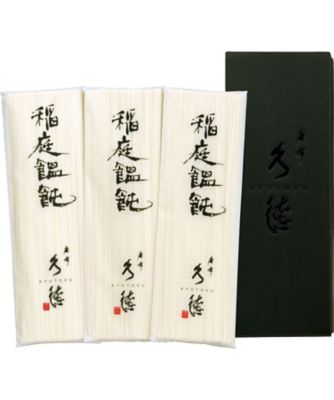 稲庭饂飩
久徳
KYUTOKU
稲庭饂飩
久徳
KYUTOKU
稲庭饂飩
久徳
KYUTOKU
久徳
KYUTOKU